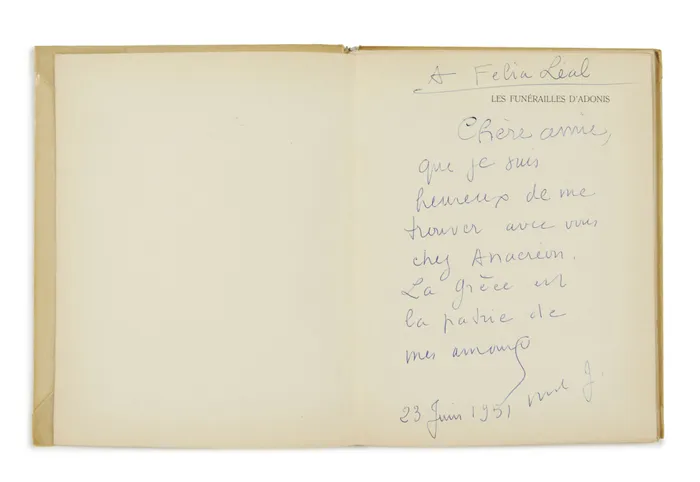 A Felia Léal
LES FUNÉRAILLES D'ADONIS
Chère amie,
que je suis
heureux de me
trouver avec vous
chez Anacréon.
La Grèce est
la patrie de
mes amours
23 Juin 1951
J.